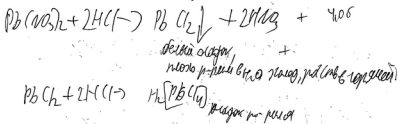 Pb(NO3)2 + 2HCl → PbCl2↓ + 2HNO3 +
белый осадок, +
плохо р-рим в H2O холод, раств в горячей
PbCl2 + 2HCl → H2[PbCl4]
осадок р-рился